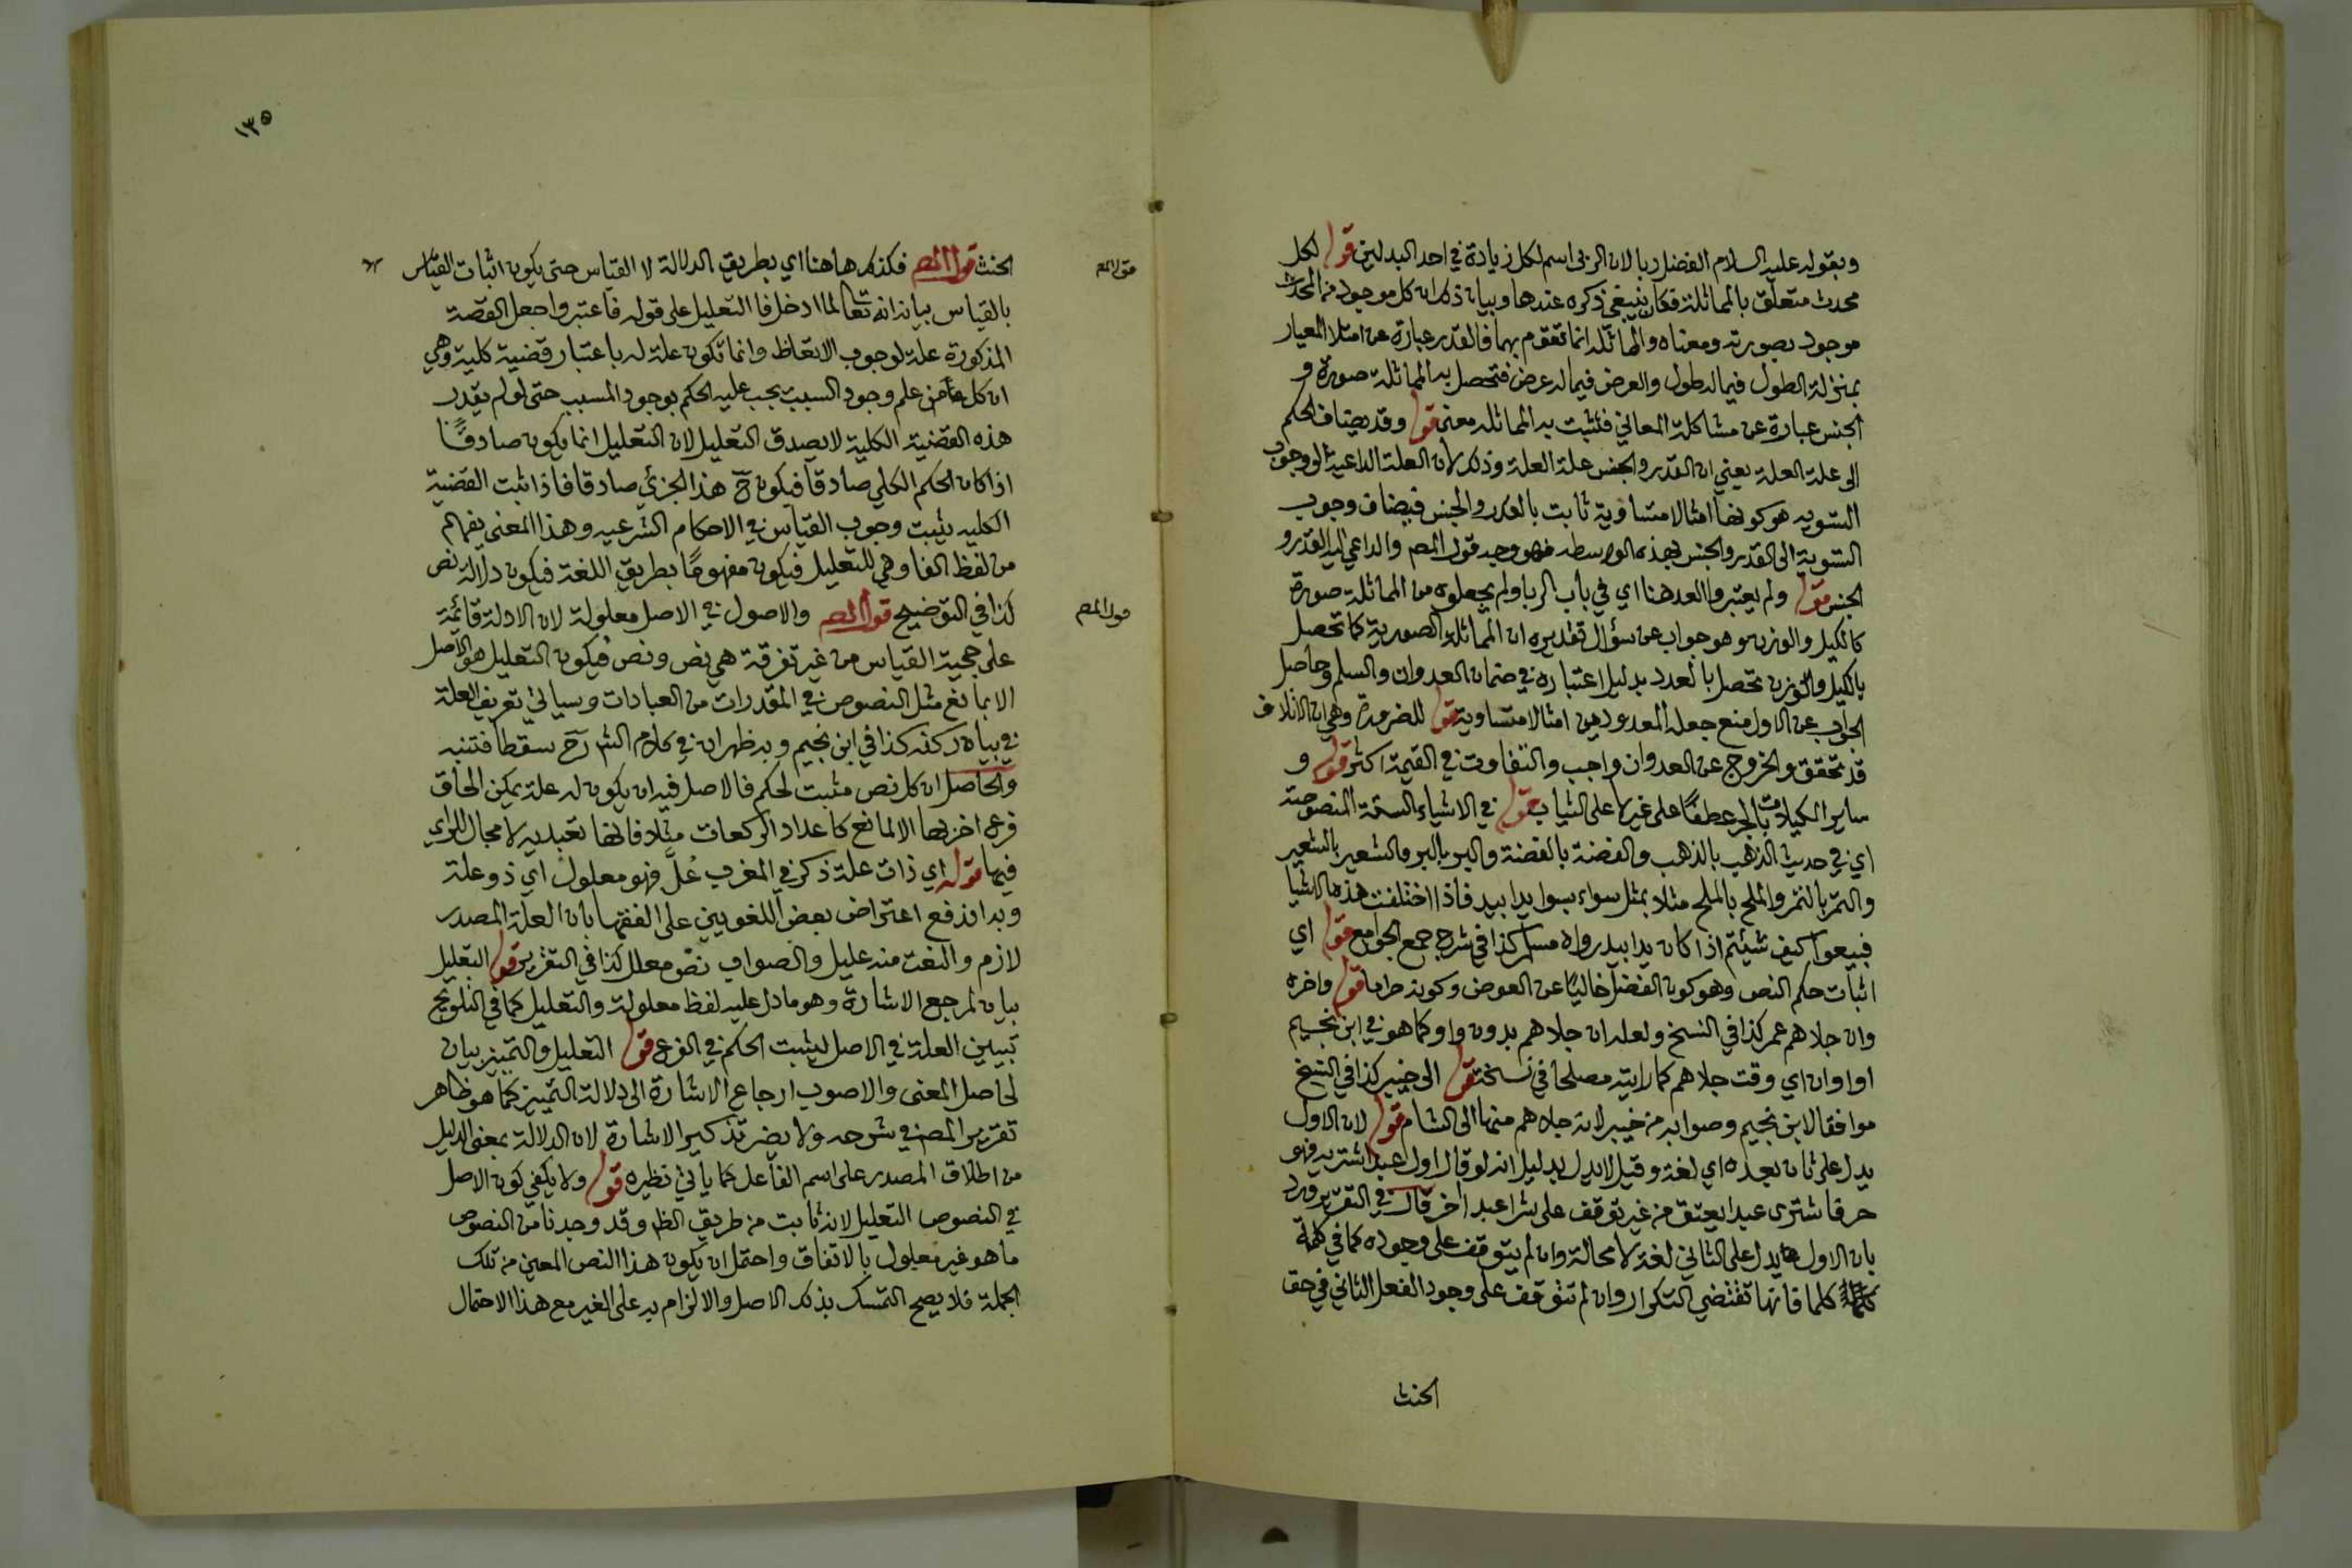 وبقوله عليه السلام الفضل ربا لان الربى اسم لكل زيادة في احد البدلين قوله لكل
محدث متعلق بالمماثلة فكان ينبغي ذكره عندها وبيان ذلك ان كل موجود من المحدث
موجود بصورته ومعناه والمماثلة انما تقوم بهما فالقدر عبارة عن امتلا المعيار
بمنزلة الطول فيما له طول والعرض فيما له عرض فتحصل به المماثلة صورة و
الجنس عبارة عن مشاكلة المعاني فتثبت به المماثله معنى قوله وقد يضاف الحكم
الى علة العلة يعني ان القدر والجنس علة العلة وذلك لان العلة الداعية الى وجوب
التسويه هو كونها امثالا متساوية ثابت بالقدر والجنس فيضاف وجوب
التسوية الى القدر والجنس بهذه الواسطه فهو وجه قول المص والداعي اليه القدر و
الجنس قوله ولم يعتبروا العد هنا اي في باب الربا ولم يجعلوه من المماثلة صورة
كالكيل والوزن وهو جواب عن سؤال تقديره ان المماثلة الصورية كما تحصل
بالكيل والوزن تحصل بالعدد بدليل اعتباره في ضمان العدوان والسلم وحاصل
الجواب عن الاول منع جعله المعدود من امثالا متساوية قوله للضرورة وهي ان الاتلاف
قد تحقق والخروج عن العدوان واجب والتفاوت في القيمة اكثر قوله و
ساير المكيلات بالجر عطفًا على غيرها على الثياب قوله في الاشياء الستة المنصوصة
اي في حديث الذهب بالذهب والفضة بالفضة والبر بالبر والشعير بالشعير
والتمر بالتمر والملح بالملح مثلا بمثل سواء بسوا يدا بيد فاذا اختلفت هذه الاشيا
فبيعوا كيف شيئتم اذا كان يدا بيد رواه مسلم كذا في شرح جمع الجوامع قوله اي
اثبات حكم النص وهو كون الفضل خاليًا عن العوض وكونه حراما قوله واخره
وان جلاهم عمر كذا في النسخ ولعله ان جلاهم بدون واو كما هو في ابن نجيم
او اوان اي وقت جلاهم كما رايته مصلحا في نسخة قوله الى خيبر كذا في النسخ
موافقا لابن نجيم وصوابه من خيبر لانه جلاهم منها الى الشام قوله لان الاول
يدل على ثان بعده اي لغة وقيل لا يدل بدليل انه لو قال اول عبد اشتريه فهو
حر فاشترى عبدا يعتق من غير توقف على شرا عبد اخر قال في التقرير ورد
بان الاول يدل على الثاني لغة لا محالة وان لم يتوقف على وجوده كما في كلمة
كلما فانها تقتضي التكرار وان لم تتوقف على وجود الفعل الثاني في حق
الحنث
١٣٥
الحنث قول المص فكذلك هاهنا اي بطريق الدلالة لا القياس حتى يكون اثبات القياس
بالقياس بيانه انه تعالى لما ادخل فا التعليل على قوله فاعتبروا جعل القصة
المذكورة علة لوجوب الاتعاظ وانما تكون علة له باعتبار قضية كلية وهي
ان كل من علم وجود السبب يجب عليه الحكم بوجود المسبب حتى لو لم يقدر
هذه القضية الكلية لا يصدق التعليل لان التعليل انما يكون صادقًا
اذا كان الحكم الكلي صادقا فيكون ح هذا الجزئي صادقا فاذا ثبت القضية
الكليه يثبت وجوب القياس في الاحكام الشرعيه وهذا المعنى يفهم
من لفظ الفا وهي للتعليل فيكون مفهومًا بطريق اللغة فيكون دلالة نص
كذا في التوضيح قول المص والاصول في الاصل معلولة لان الادلة قائمة
على حجية القياس من غير تفرقة هي نص ونص فيكون التعليل هو الاصل
الا بمانع مثل النصوص في المقدرات من العبادات وسياتي تعريف العلة
في بيان ركنه كذا في ابن نجيم وبه ظهر ان في كلام الشارح سقطا فتنبه
والحاصل ان كل نص مثبت لحكم فالاصل فيه ان يكون له علة يمكن الحاق
فرع اخر بها الا لمانع كاعداد الركعات مثلا فانها تعبديه لا مجال للراي
فيها قوله اي ذات علة ذكر في المغرب عُلَّ فهو معلول اي ذو علة
وبه اندفع اعتراض بعض اللغويين على الفقها بان العلة المصدر
لازم والنعت منه عليل والصواب نص معلل كذا في التقرير قوله التعليل
بيان لمرجع الاشارة وهو ما دل عليه لفظ معلولة والتعليل كما في التلويح
تبيين العلة في الاصل ليثبت الحكم في الفرع قوله التعليل والتمييز بيان
لحاصل المعنى والاصوب ارجاع الاشارة الى دلالة التمييز كما هو ظاهر
تقرير المص في شرحه ولا يضر تذكير الاشارة لان الدلالة بمعنى الدليل
من اطلاق المصدر على اسم الفاعل كما ياتي نظيره قوله ولا يكفي كون الاصل
في النصوص التعليل لانه ثابت من طريق الظ وقد وجدنا من النصوص
ما هو غير معلول بالاتفاق واحتمل ان يكون هذا النص المعين من تلك
الجملة فلا يصح التمسك بذلك الاصل والالزام به على الغير مع هذا الاحتمال
قول المص
قول المص